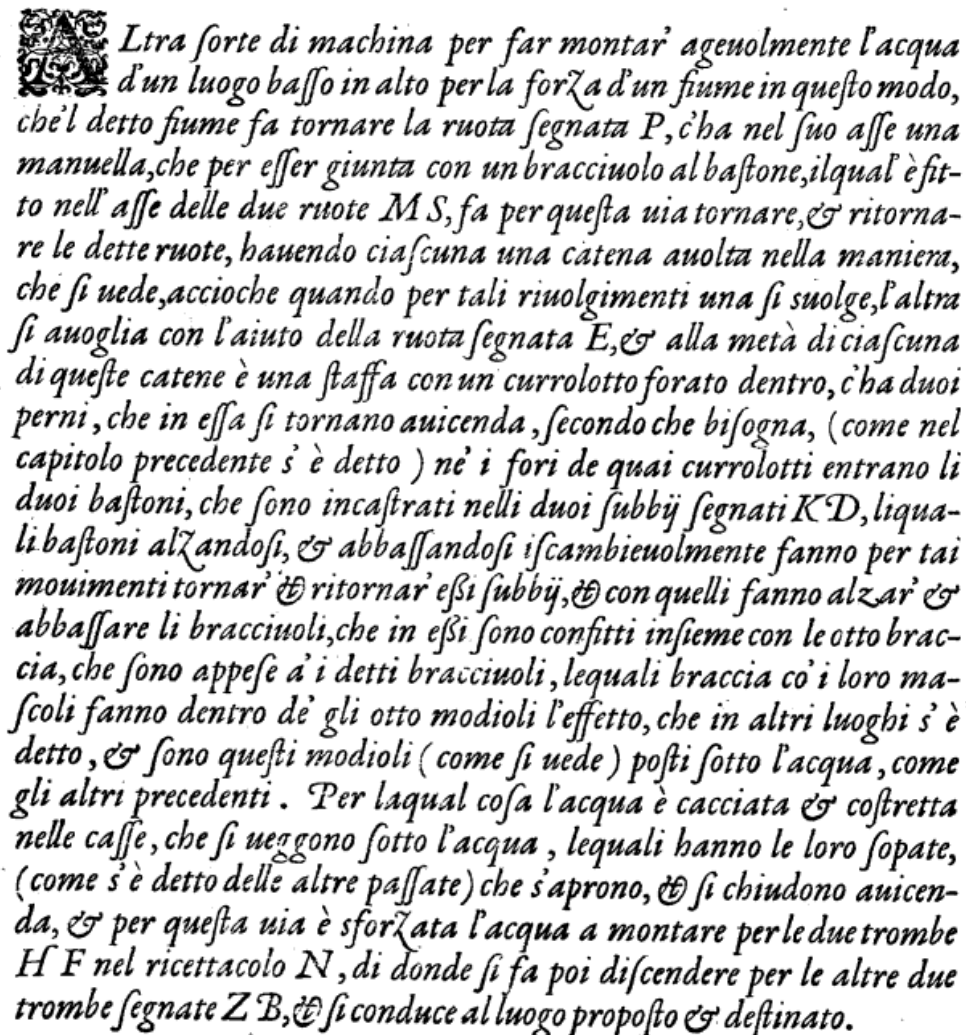 ALtra ſorte di machina per far montar' ageuolmente l'acqua
d'un luogo baſſo in alto per la forza d'un fiume in queſto modo,
che'l detto fiume fa tornare la ruota ſegnata P, c'ha nel ſuo aſſe una
manuella, che per eſſer giunta con un bracciuolo al baſtone, ilqual' è fit-
to nell' aſſe delle due ruote M S, fa per queſta uia tornare, & ritorna-
re le dette ruote, hauendo ciaſcuna una catena auolta nella maniera,
che ſi uede, accioche quando per tali riuolgimenti una ſi suolge, l'altra
ſi auoglia con l'aiuto della ruota ſegnata E, & alla metà di ciaſcuna
di queſte catene è una ſtaffa con un currolotto forato dentro, c'ha duoi
perni, che in eſſa ſi tornano auicenda, ſecondo che biſogna, (come nel
capitolo precedente s' è detto) ne' i fori de quai currolotti entrano li
duoi baſtoni, che ſono incaſtrati nelli duoi ſubbij ſegnati K D, liqua-
li baſtoni alzandoſi, & abbaſſandoſi iſcambieuolmente fanno per tai
mouimenti tornar' & ritornar' eßi ſubbij, & con quelli fanno alzar' &
abbaſſare li bracciuoli, che in eßi ſono confitti inſieme con le otto brac-
cia, che ſono appeſe a' i detti bracciuoli, lequali braccia co' i loro ma-
ſcoli fanno dentro de' gli otto modioli l'effetto, che in altri luoghi s' è
detto, & ſono queſti modioli (come ſi uede) poſti ſotto l'acqua, come
gli altri precedenti. Per laqual coſa l'acqua è cacciata & coſtretta
nelle caſſe, che ſi ueggono ſotto l'acqua, lequali hanno le loro ſopate,
(come s'è detto delle altre paſſate) che s'aprono, & ſi chiudono auicen-
da, & per queſta uia è sforzata l'acqua a montare per le due trombe
H F nel ricettacolo N, di donde ſi fa poi diſcendere per le altre due
trombe ſegnate Z B, & ſi conduce al luogo propoſto & deſtinato.